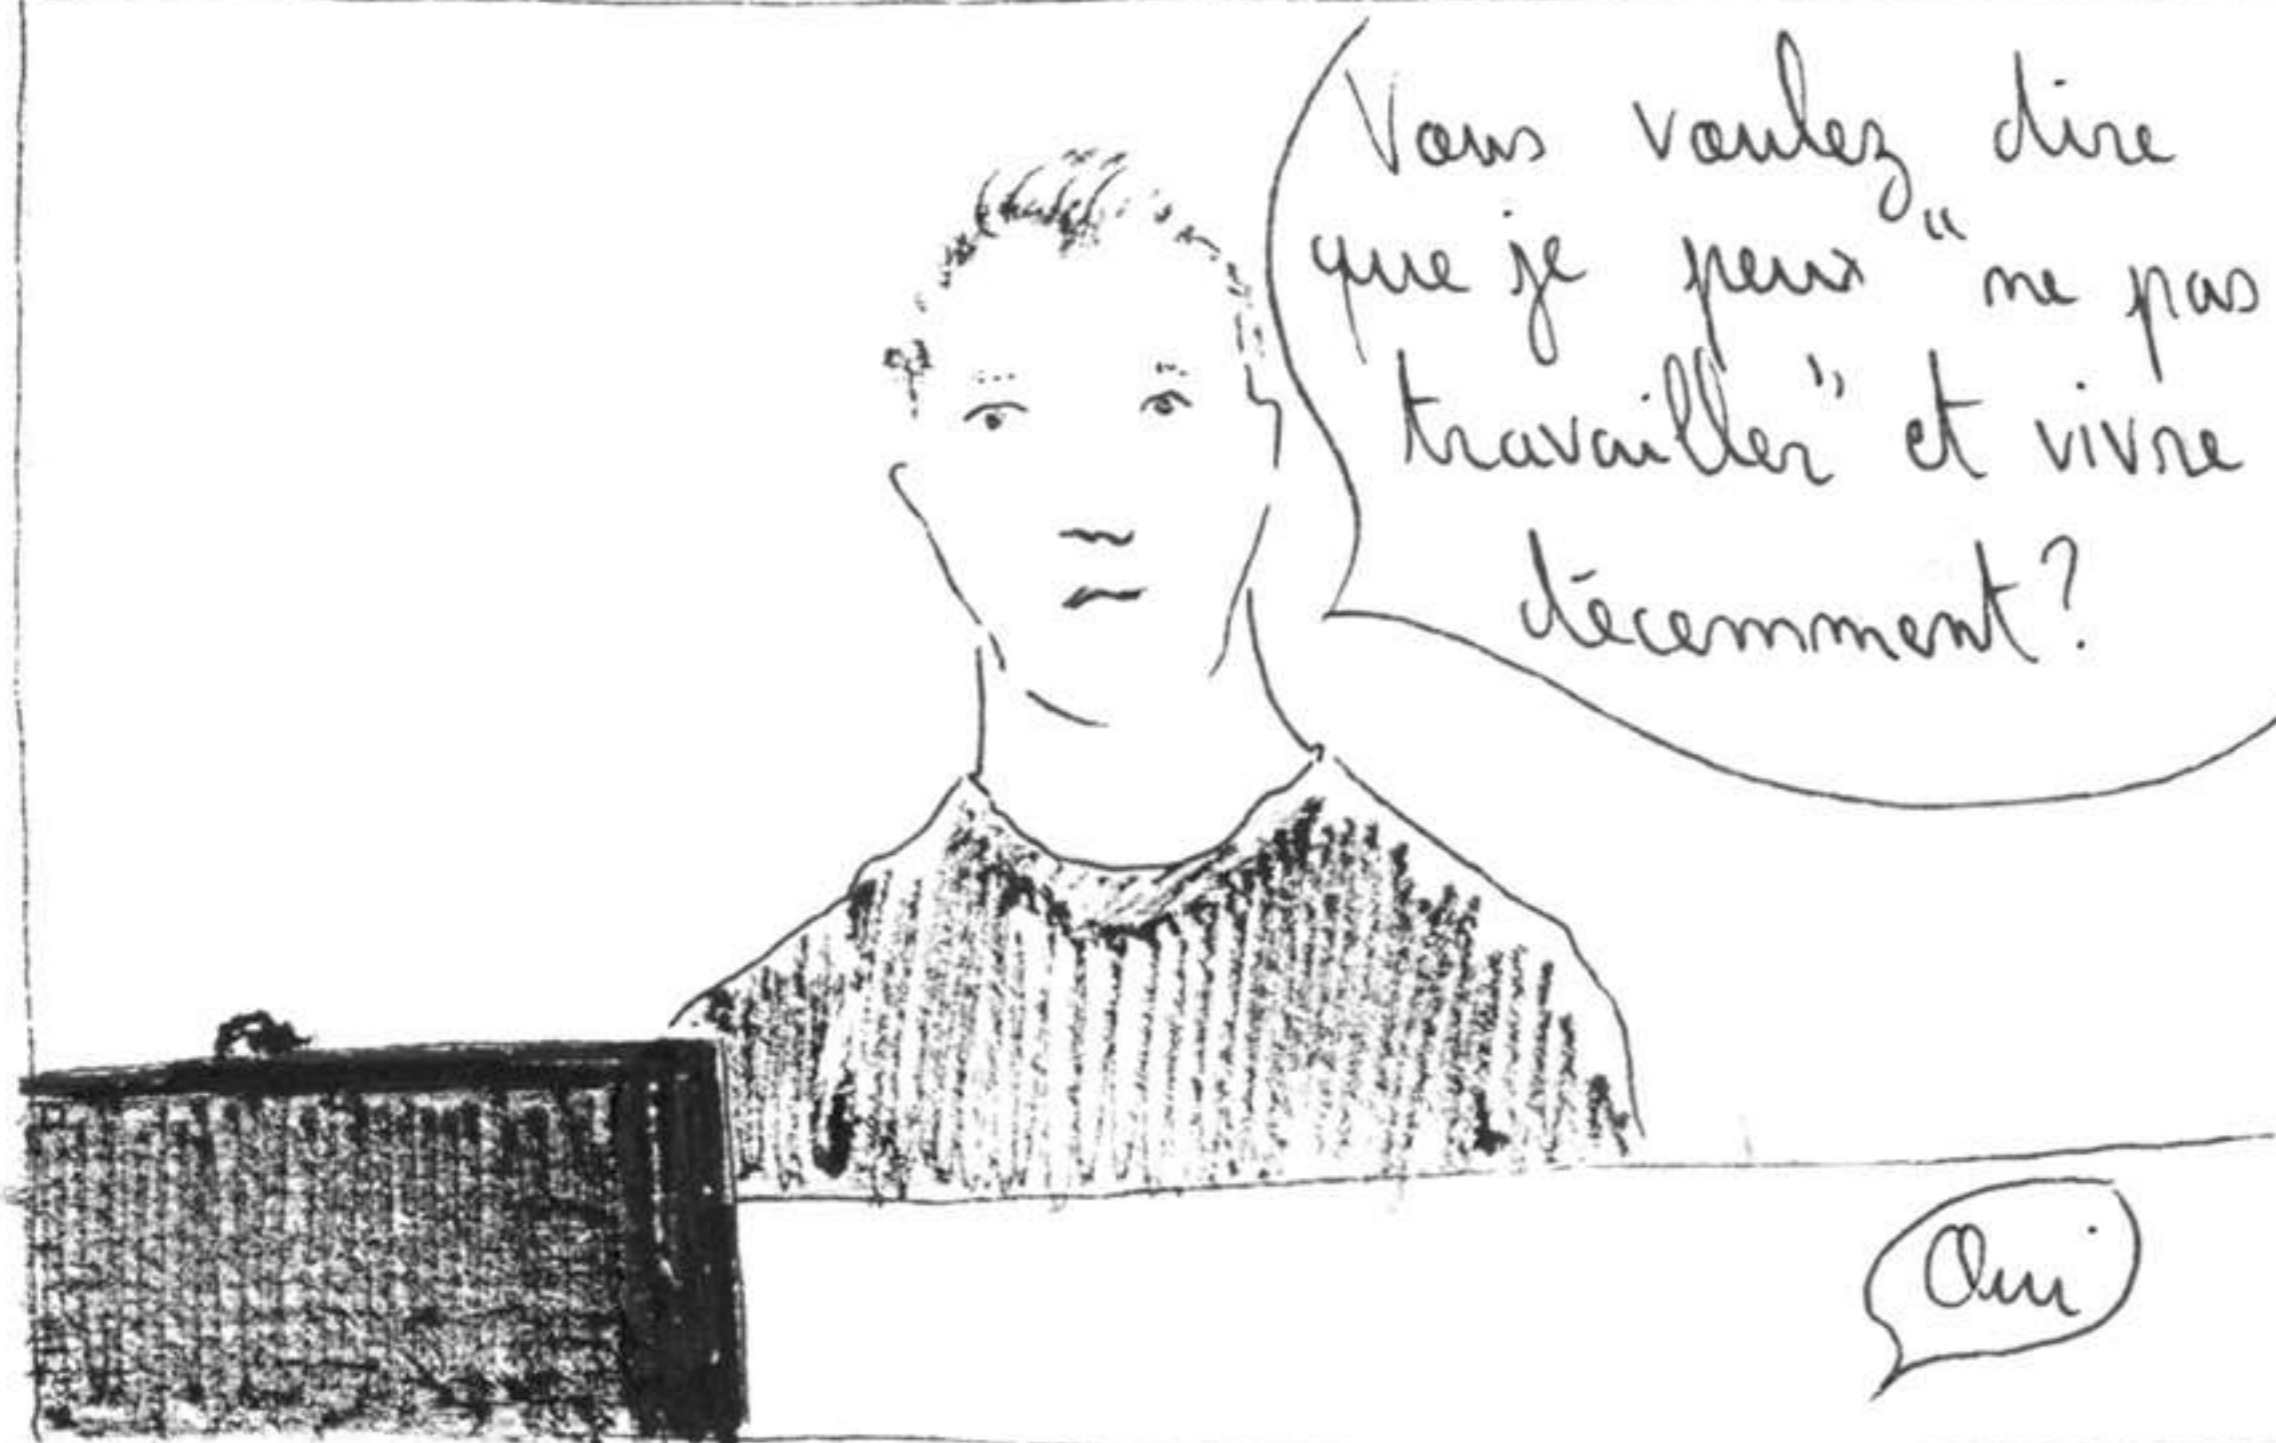 Vous voulez dire
que je peux "ne pas
travailler" et vivre
décemment?
Oui